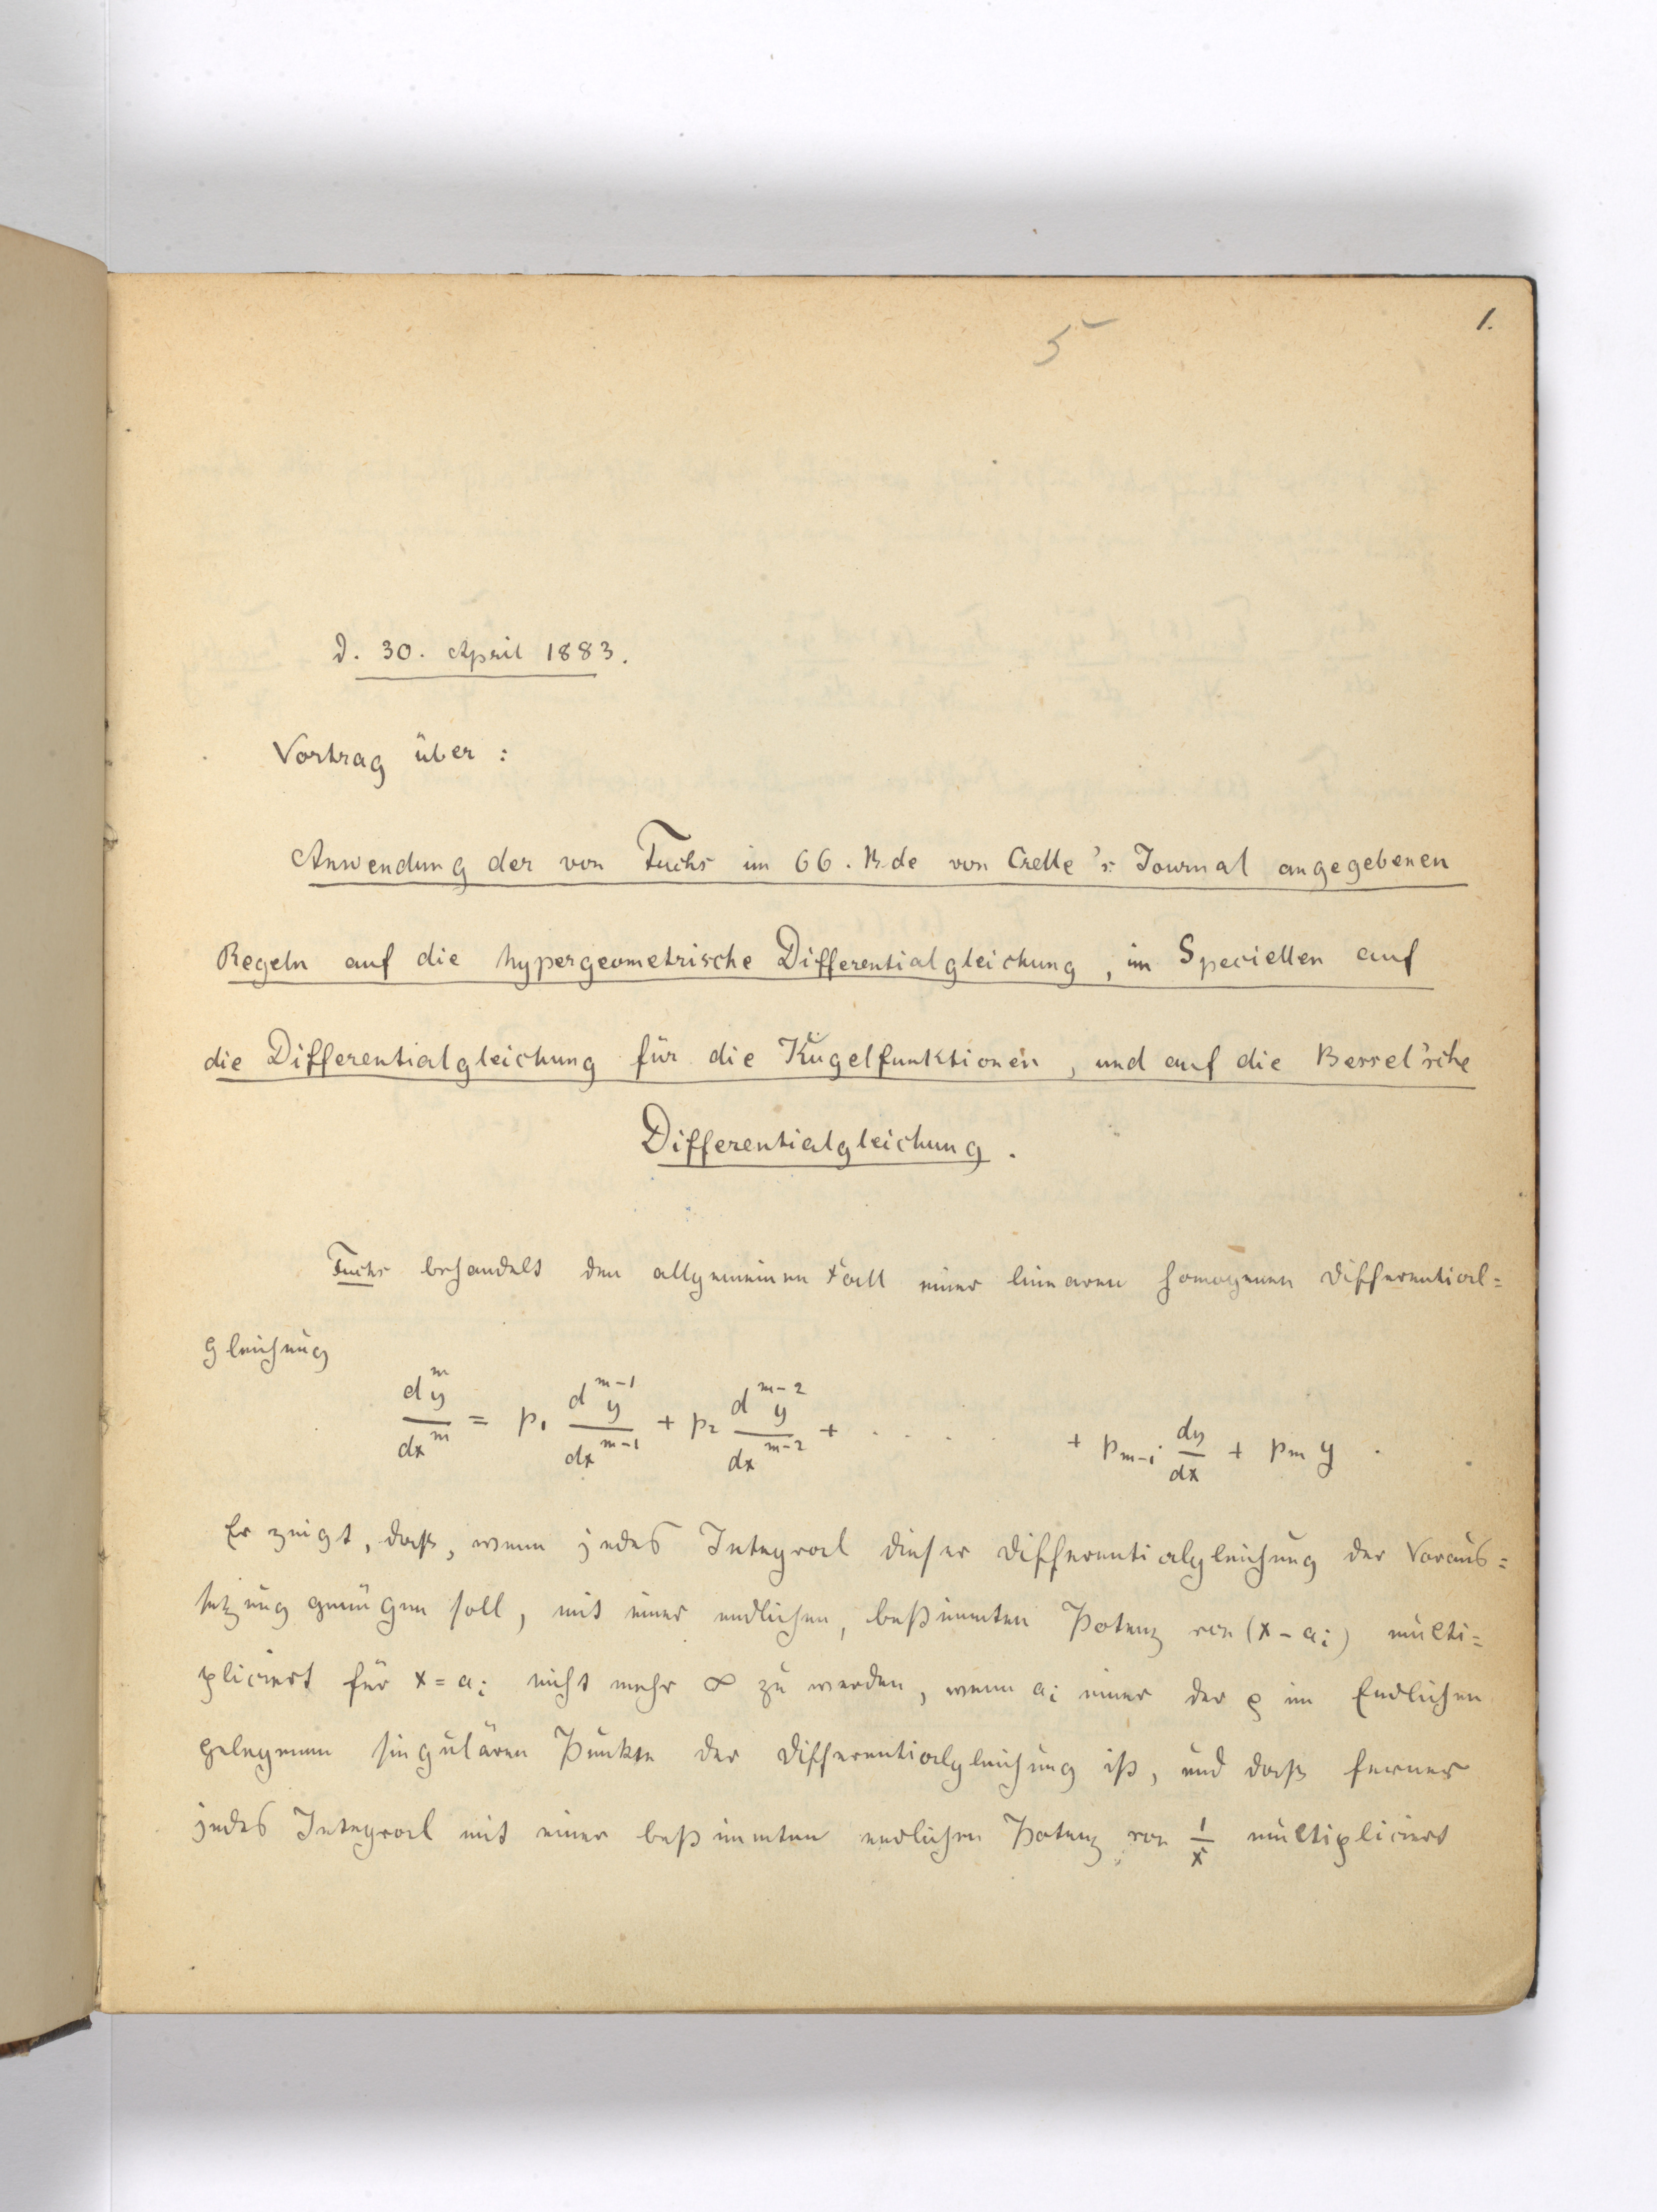 1.
5
d. 30. April 1883.
Vortrag über :
Anwendung der von Fuchs im 66. Bde von Crelle's Journal angegebenen
Regeln auf die hypergeometrische Differentialgleichung, im Speciellen auf
die Differentialgleichung für die Kugelfunktionen, und auf die Bessel'sche
Differentialgleichung.
Fuchs behandelt den allgemeinen Fall einer linearen homogenen Differential=
gleichung
d^m y / dx^m = p_1 d^{m-1} y / dx^{m-1} + p_2 d^{m-2} y / dx^{m-2} + . . . . . + p_{m-1} dy/dx + p_m y .
Er zeigt, daß, wenn jedes Integral dieser Differentialgleichung der Voraus=
setzung genügen soll, mit einer endlichen, bestimmten Potenz von (x - a_i) multi=
pliciert für x = a_i nicht mehr ∞ zu werden, wenn a_i einer der ρ im Endlichen
gelegenen singulären Punkte der Differentialgleichung ist, und daß ferner
jedes Integral mit einer bestimmten endlichen Potenz von 1/x multipliciert